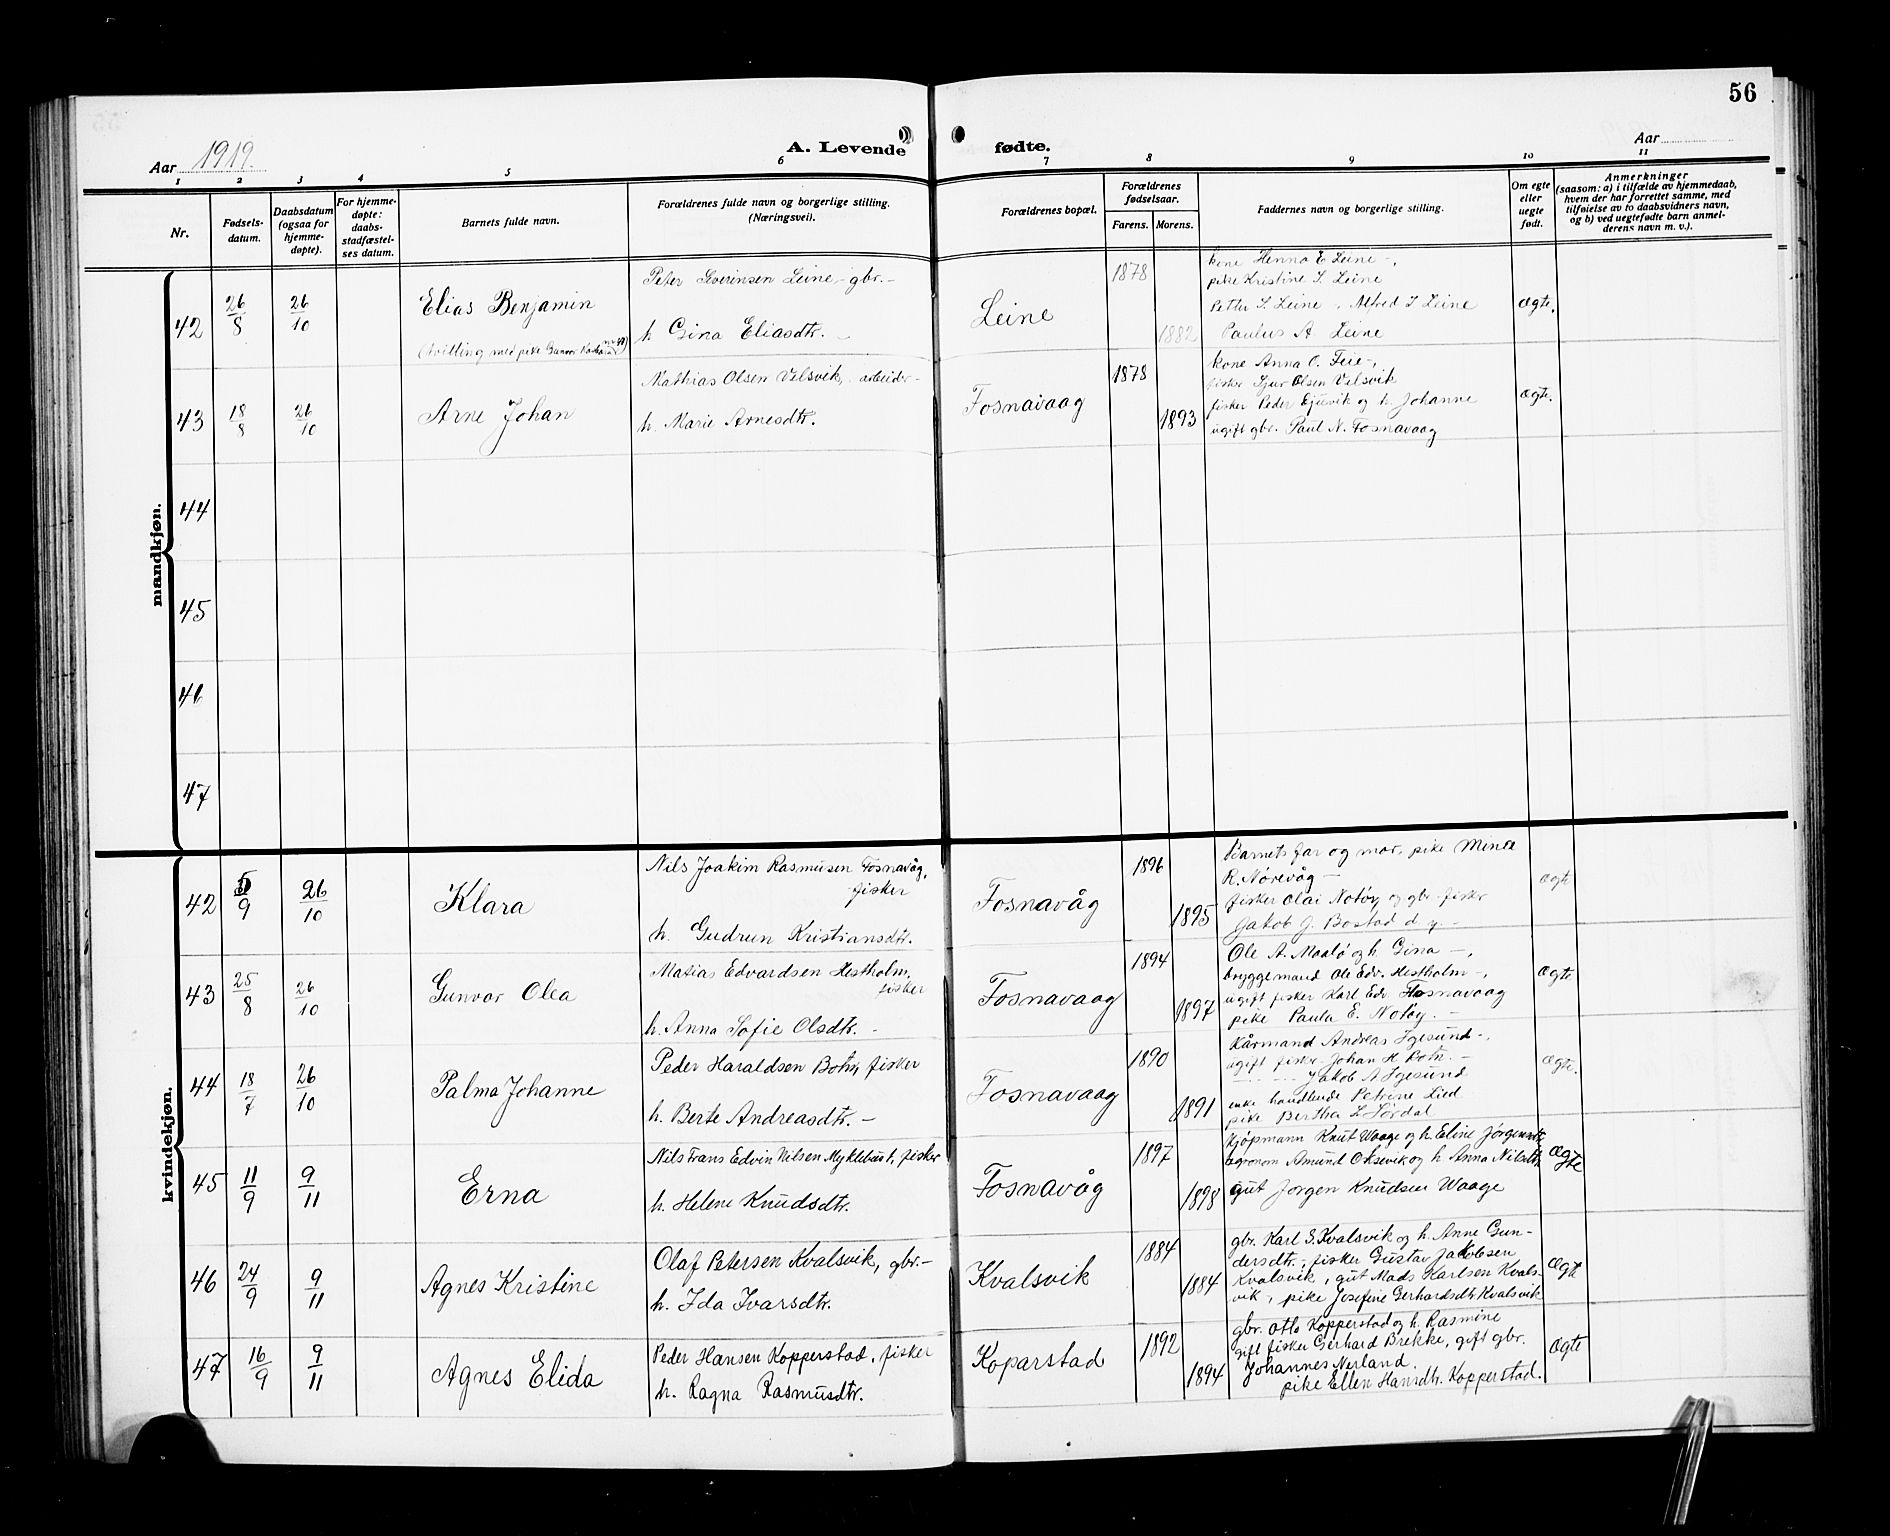 56
Aar 1919.
A. Levende fødte.
Aar
1 2 3 4 5 6 7 8 9 10 11
Nr.
Fødsels-
datum.
Daabsdatum
(ogsaa for
hjemme-
døpte).
For hjemme-
døpte:
daabs-
stadfæstel-
ses datum.
Barnets fulde navn.
Forældrenes fulde navn og borgerlige stilling.
(Næringsvei).
Forældrenes bopæl.
Forældrenes
fødselsaar.
Farens. Morens.
Faddernes navn og borgerlige stilling.
Om egte
eller
uegte
født.
Anmerkninger
(saasom: a) i tilfælde av hjemmedaab,
hvem der har forrettet samme, med
tilføielse av to daabsvidners navn,
og b) ved uegtefødte barn anmel-
derens navn m. v.).
mandkjøn.
42 26/8 26/10
Elias Benjamin
(tvilling med pike Gunvor
Peter Severinsen Leine, gbr.
h. Gina Eliasdtr.
Leine
1878
1882
kone Henna E Leine -,
pike Kristine S. Leine
Petter S. Leine, Alfred S. Leine
Paulus A Leine
Ægte.
43 18/8 26/10
Arne Johan
Mathias Olsen Velsvik, arbeider
h. Marie Arnesdtr.
Fosnavaag
1878
1893
kone Anna O. Feie -,
fisker Sjur Olsen Velsvik
fisker Peder Ejusvik og h. Johanne
ugift gbr. Paul N. Fosnavaag
Ægte.
44
45
46
47
kvindekjøn.
42 5/9 26/10
Klara
Nils Joakim Rasmusen Fosnavåg,
fisker
h. Gudrun Kristiansdtr.
Fosnavåg
1896
1895
Barnets far og mor, pike Mina
R. Nørevåg -
fisker Olai Notøy og gbr. fisker
Jakob J. Bostad d. y. -
Ægte
43 25/8 26/10
Gunvor Olea
Matias Edvardsen Hestholm,
fisker
h. Anna Sofie Olsdtr. -
Fosnavaag
1894
1897
Ole A. Maalø og h. Gina -,
bryggemand Ole Edv. Hestholm -,
ugift fisker Karl Edv. Fosnavaag
pike Paula E. Notøy. -
Ægte
44 18/7 26/10
Palma Johanne
Peder Haraldsen Botn, fisker
h. Berte Andreasdtr. -
Fosnavaag
1890
1891
Kårmand Andreas Igesund -,
ugift fisker Johan H Botn. -
Jakob A Igesund
enke handlende Petrine Lied
pike Bertha L Sørdal
Ægte.
45 11/9 9/11
Erna
Nils Frans Edvin Nilsen Myklebust, fisker
h. Helene Knudsdtr.
Fosnavåg
1897
1898
Kjøpmann Knut Waage og h. Eline Jørgensdtr,
agronom Amund Oksevik og h Anna Nilsdtr.
gut Jørgen Knudsen Waage
Ægte
46 24/9 9/11
Agnes Kristine
Olaf Petersen Kvalsvik, gbr. -
h. Ida Ivarsdtr.
Kvalsvik
1884
1884
gbr. Karl S. Kvalsvik og h. Anne Gun-
dersdtr., fisker Gustav Jakobsen
Kvalsvik, gut Mads Karlsen Kvals-
vik, pike Josefine Gerhardsdtr. Kvalsvik
Ægte
47 16/9 9/11
Agnes Elida
Peder Hansen Kopperstad, fisker
h. Ragna Rasmusdtr.
Koparstad
1892
1894
gbr. Otto Kopperstad og h. Rasmine
gift fisker Gerhard Brekke, gift gbr.
Johannes Nerland.
pike Ellen Hansdtr. Kopperstad.
Ægte